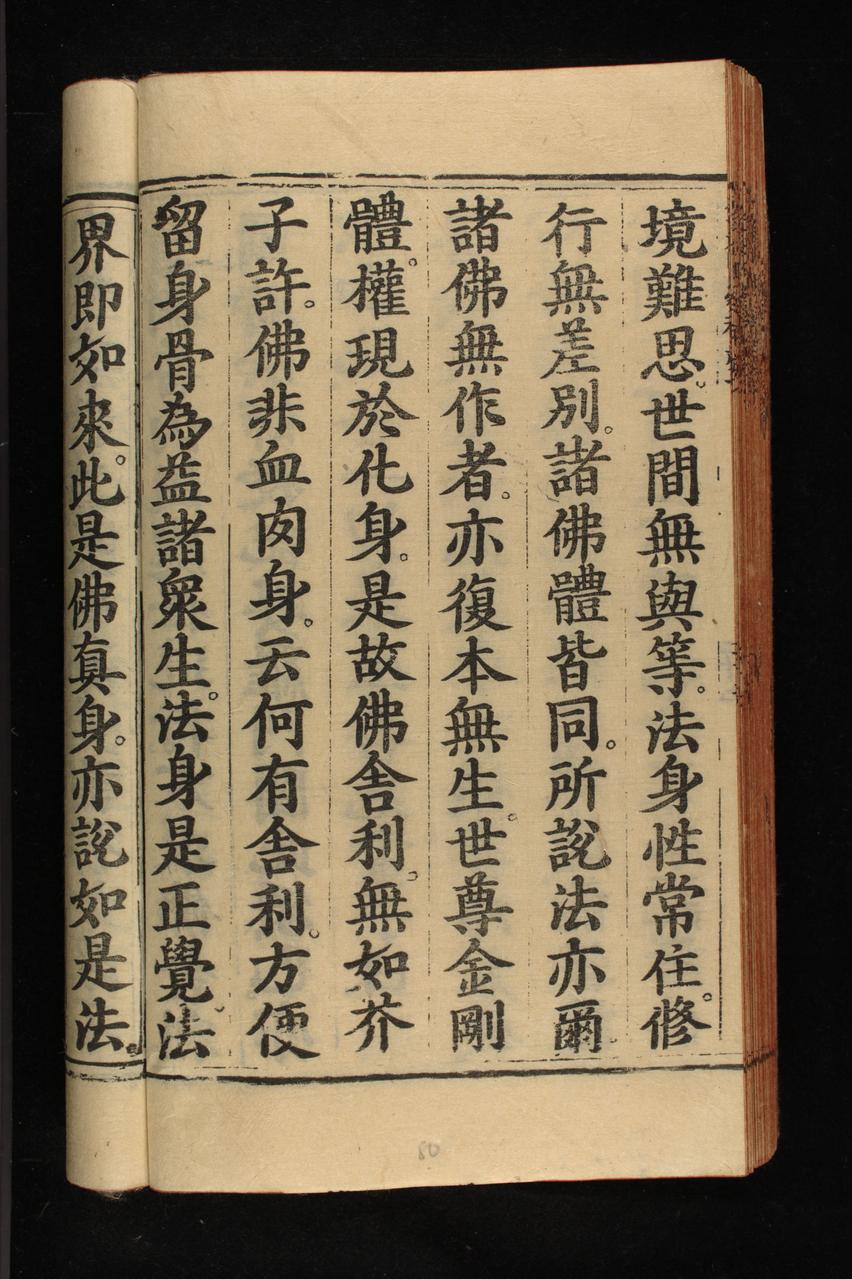 境難思。世間無與等。法身性常住。修
行無差別。諸佛體皆同。所說法亦爾
諸佛無作者。亦復本無生。世尊金剛
體。權現於化身。是故佛舍利。無如芥
子許。佛非血肉身。云何有舍利。方便
留身骨為益諸眾生。法身是正覺。法
界即如來。此是佛真身。亦說如是法。
80